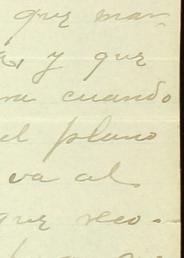 que man
y que
cuando
el plano
va al
que reco-